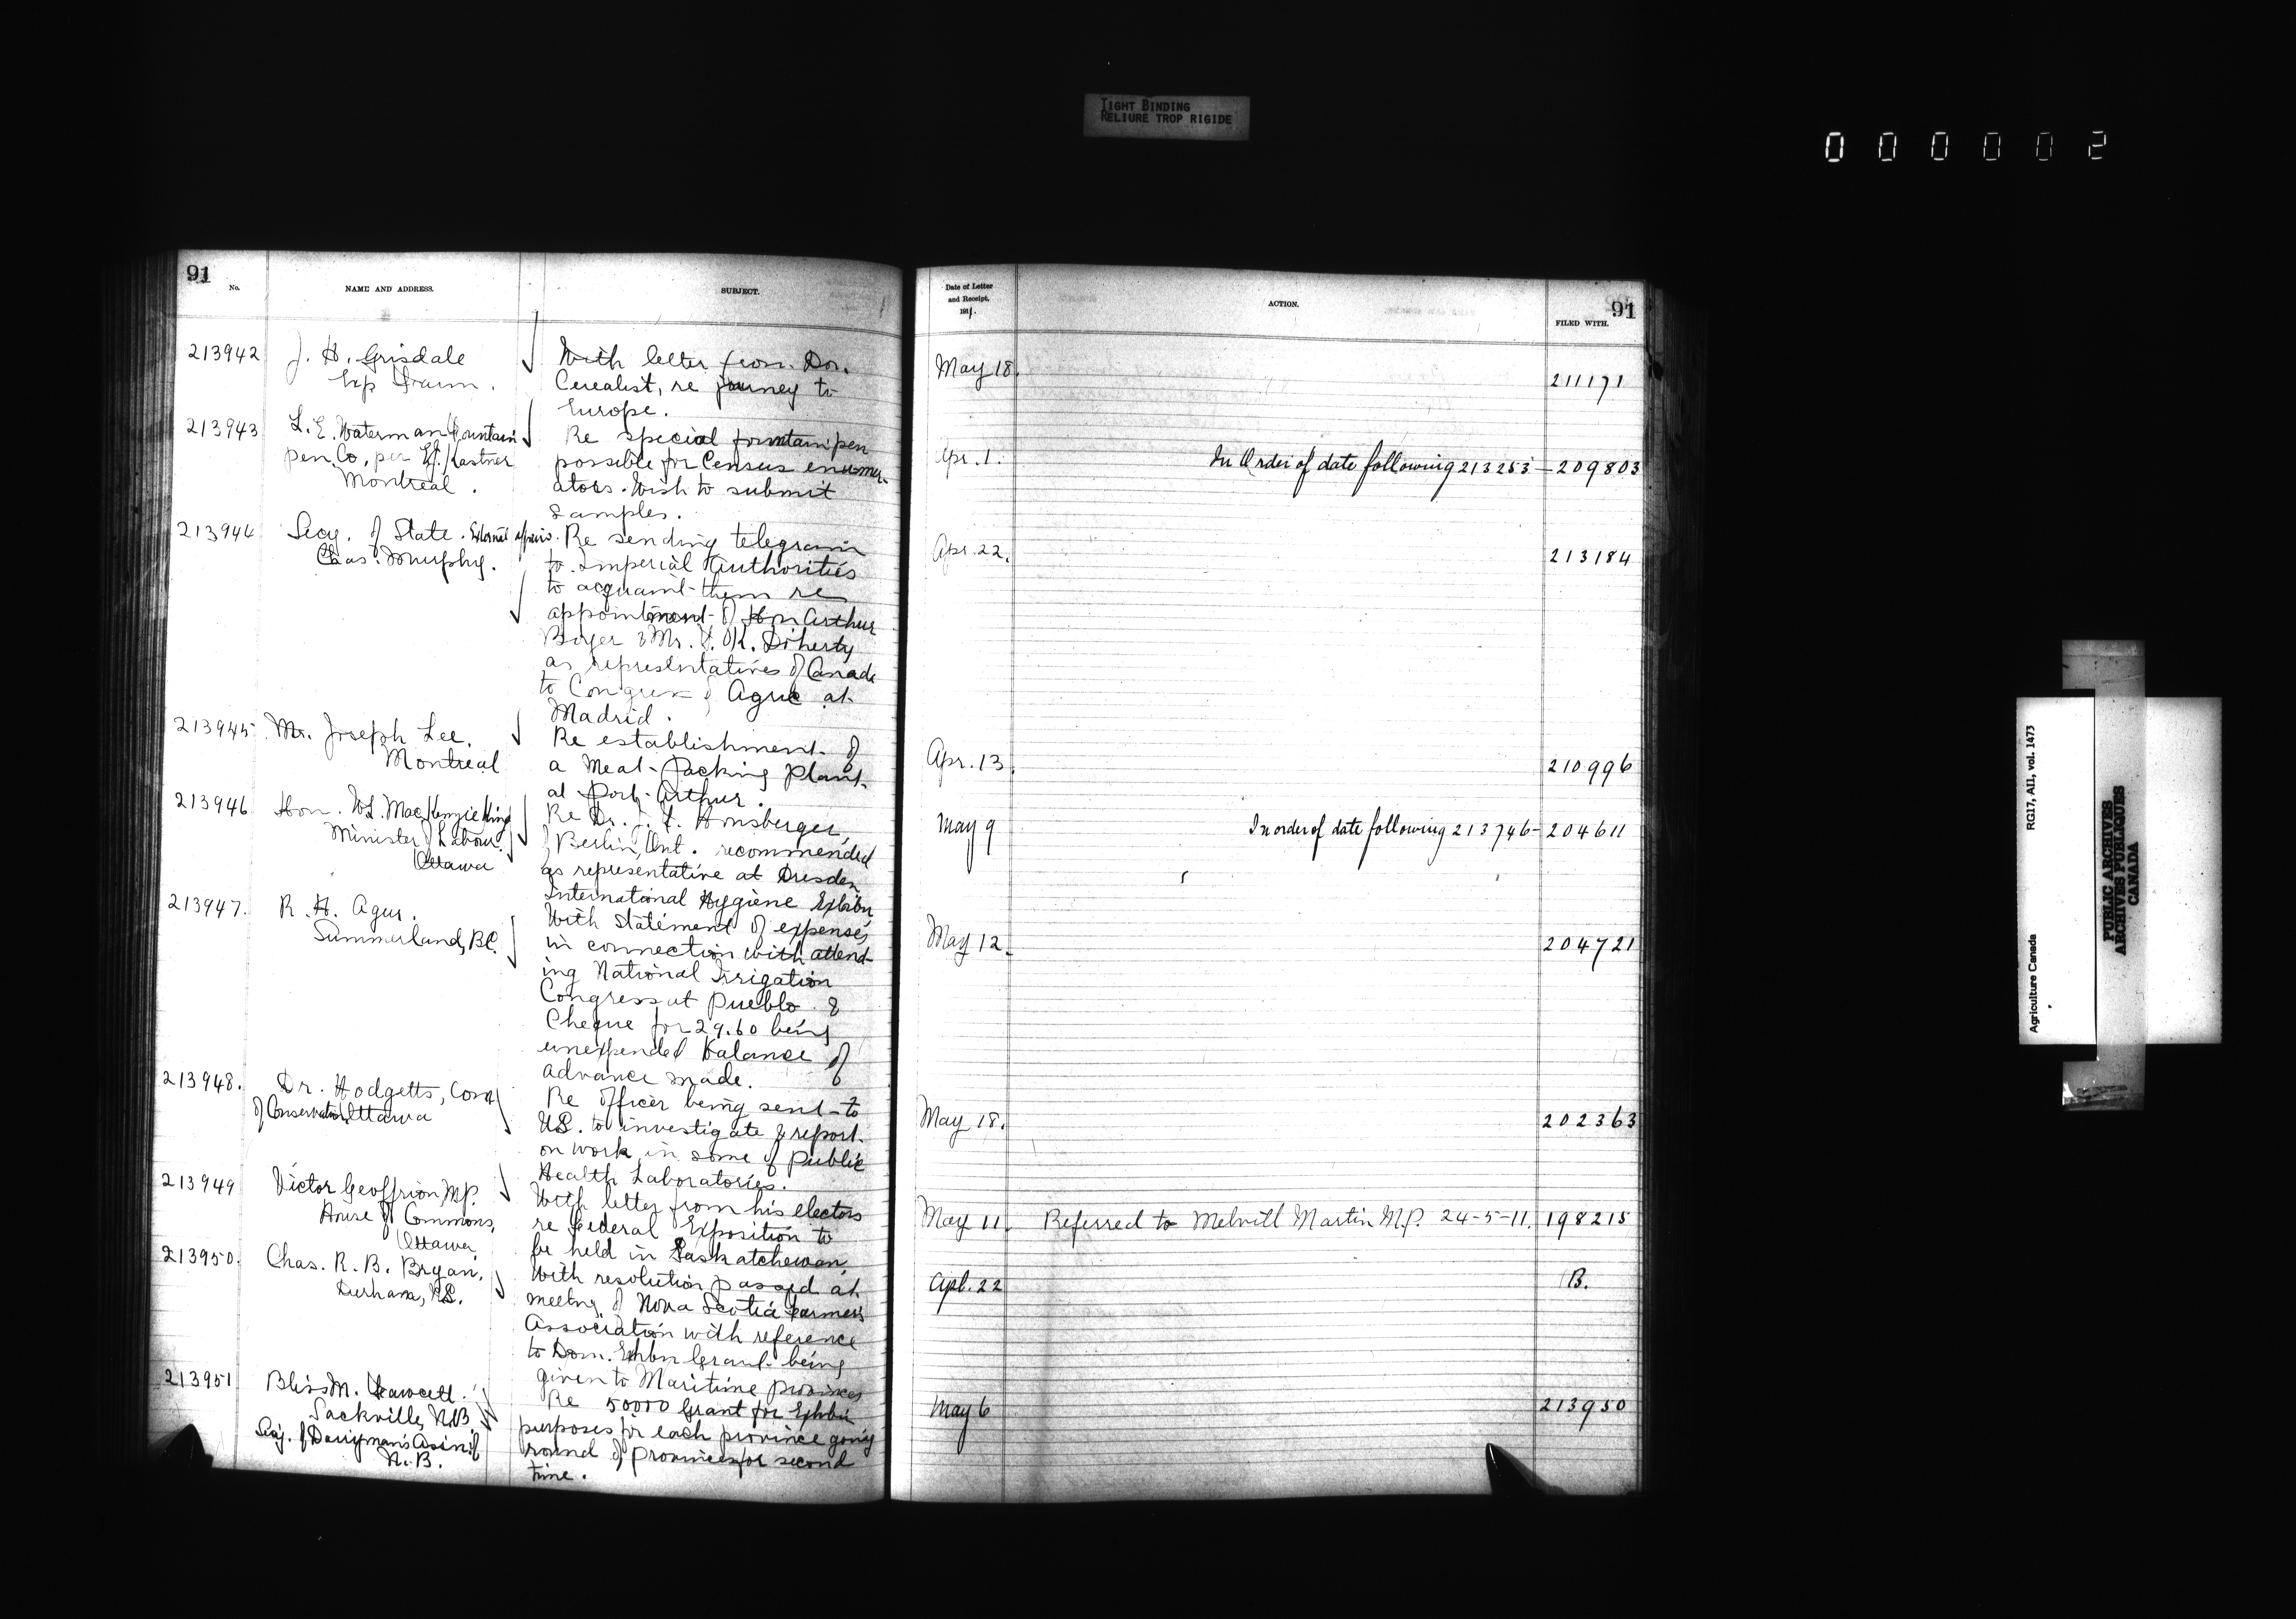 TIGHT BINDING
RELIURE TROP RIGIDE
000002
91
No.
NAME AND ADDRESS.
SUBJECT.
213942
J. H. Grisdale
Exp Farm.
With letter from Dom.
Cerealist, re journey to
Europe.
213943
L. E. Waterman Fountain
pen Co, per Kastner
Montreal.
Re special fountain pen
possible for Census enumer-
ators. Wish to submit
samples.
213944
Secy. of State. External affairs.
Chas. Murphy.
Re sending telegram
to Imperial Authorities
to acquaint them re
appointment of Hon Arthur
Boyer & Mr. T. K. Doherty
as representatives of Canada
to Congress of Agric at
Madrid.
213945
Mr. Joseph Lee,
Montreal
Re establishment of
a Meat-packing plant
at Port Arthur.
213946
Hon. W.L. MacKenzie King
Minister of Labour.
Ottawa
Re Dr. J. F. Honsberger,
of Berlin, Ont. recommended
as representative at Dresden
International Hygiene Exhbn
213947.
R. H. Agur.
Summerland, B.C.
With Statement of expenses
in connection with attend-
ing National Irrigation
Congress at Pueblo &
Cheque for 29.60 being
unexpended balance of
advance made.
213948.
Dr. Hodgetts, Com
of Conservation, Ottawa
Re Officer being sent to
U.S. to investigate & report
on work in some of public
Health Laboratories.
213949
Victor Geoffrion, M.P.
House of Commons,
Ottawa
With letter from his electors
re Federal Exposition to
be held in Saskatchewan.
213950.
Chas. R. B. Bryan,
Durham, N.S.
With resolution passed at
meetng. of Nova Scotia Farmers
Association with reference
to Dom. Exhbn Grant being
given to Maritime provinces
213951
Bliss M. Fawcett.
Sackville, N.B.
Secy. of Dairyman's Assn of
N.B.
Re 50000 Grant for Exhbn
purposes for each province going
round of provinces for second
time.
Date of Letter
and Receipt,
1911.
ACTION.
91
FILED WITH.
May 18.
211171
Apr. 1.
In Order of date following 213253 - 209803
Apr. 22.
213184
Apr. 13.
210996
May 9
In order of date following 213746 - 204611
May 12.
204721
May 18.
202363
May 11.
Referred to Melvill Martin M.P. 24-5-11.
198215
Apl. 22
B.
May 6
213950
Agriculture Canada
RG17, AII, vol. 1473
PUBLIC ARCHIVES
ARCHIVES PUBLIQUES
CANADA